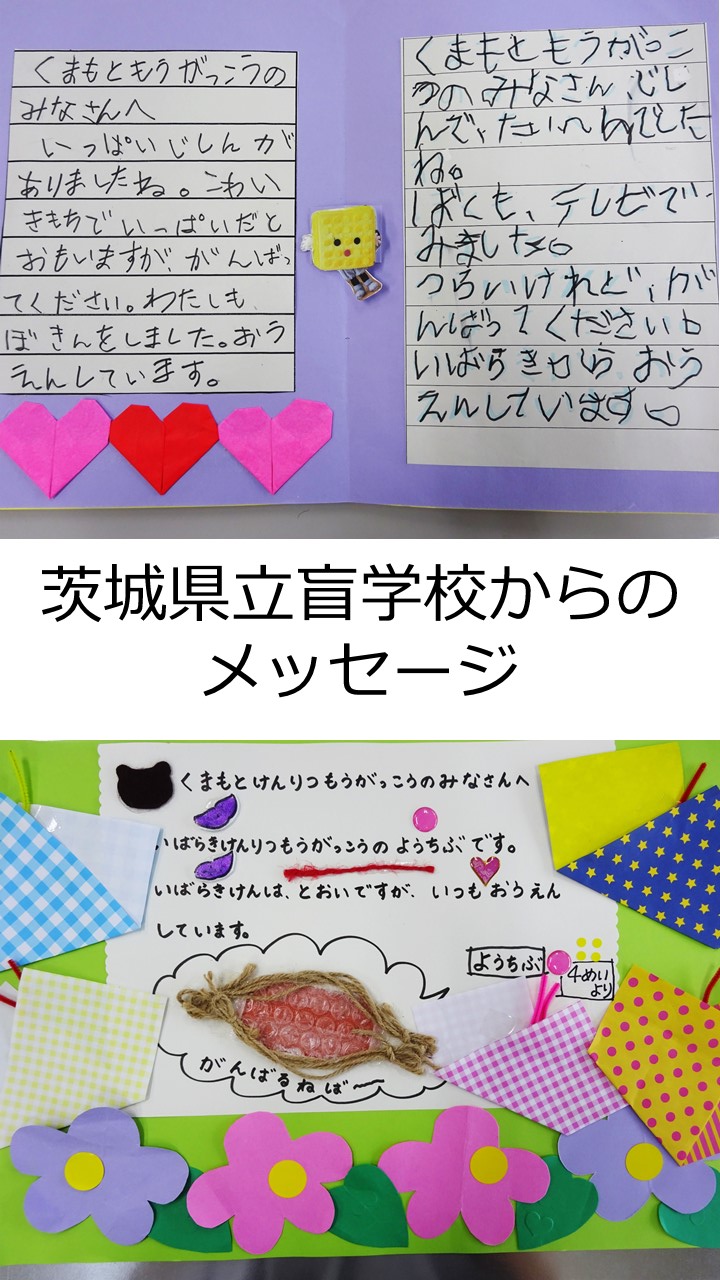 くまもともうがっこうの
みなさんへ
いっぱいじしんが
ありましたね。こわい
きもちでいっぱいだと
おもいますが、がんばっ
てください。わたしも、
ぼきんをしました。おう
えんしています。
くまもともうがっこ
うのみなさん、じし
んで、たいへんでした
ね。
ぼくも、テレビで
みました。
つらいけれど、が
んばってください。
いばらきから、おう
えんしています。
茨城県立盲学校からの
メッセージ
くまもとけんりつもうがっこうのみなさんへ
いばらきけんりつもうがっこうの ようちぶです。
いばらきけんは、とおいですが、いつも おうえん
しています。
ようちぶ
4めい
より
がんばるねば〜